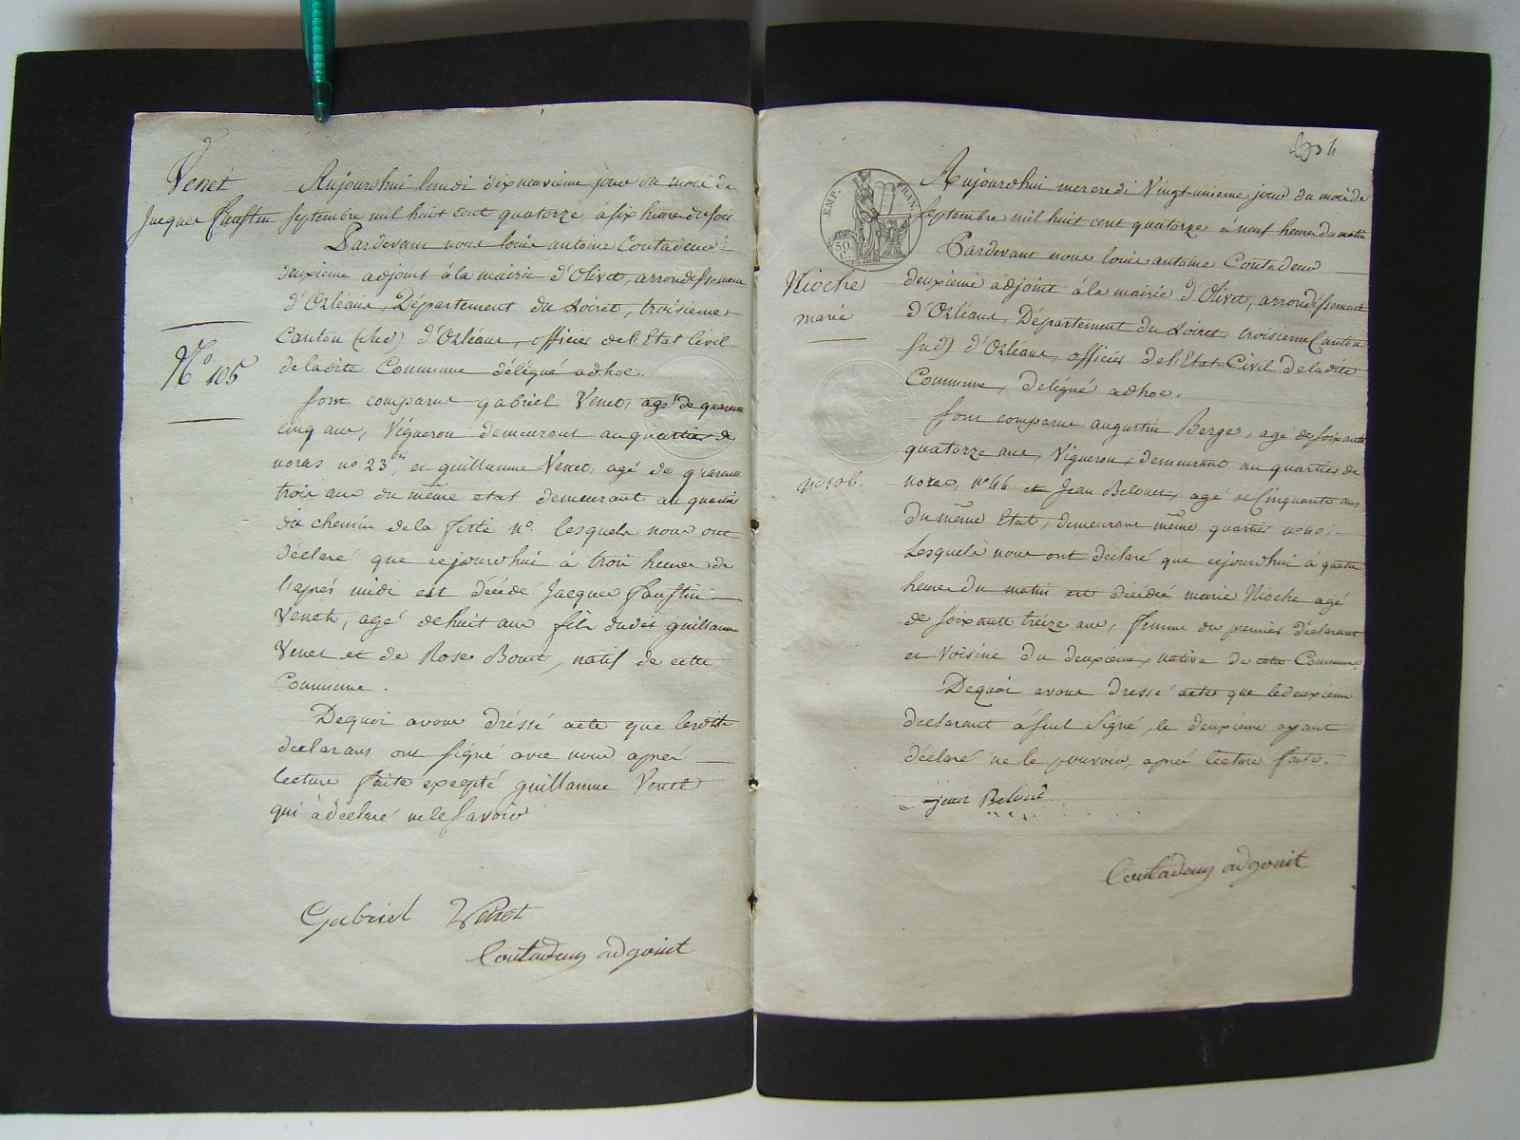 Venet
Jacque Faustin
N° 105
Aujourdhui lundi dixneuvieme jour du mois de
septembre mil huit cent quatorze à six heures du soir
Pardevant nous louis antoine Coutadeur
deuxieme adjoint à la mairie d'Olivet, arrondissement
d'Orléans, Département du Loiret, troisieme
Canton (sud) d'Orléans, officier de l'Etat Civil
de ladite Commune délégué adhoc.
sont comparus gabriel Venet, agé de quarante
cinq ans, Vigneron demeurant au quartier de
noras no 23, et guillaume Venet, agé de quarante
trois ans du même etat demeurant au quartier
du chemin de la ferté n°. lesquels nous ont
déclaré que cejourdhui à trois heures de
l'aprés midi est décédé Jacque Faustin
Venet, agé de huit ans fils dudit guillaume
Venet et de Rose Bout, natif de cette
Commune.
Dequoi avons dréssé acte que lesdits
déclarans ont signé avec nous aprés
lecture faite excepté guillaume Venet
qui à déclaré ne le savoir
Gabriel Venet
Coutadeur adjoint
EMP. FRAN.
50
C.
Nioche
marie
no 106.
Aujourdhui mercredi Vingt-unieme jour du mois de
septembre mil huit cent quatorze a neuf heures du matin
Pardevant nous louis antoine Coutadeur
deuxieme adjoint à la mairie d'Olivet, arrondissement
d'Orléans, Département du Loiret troisieme Canton
sud) d'Orléans, officier de l'Etat Civil de ladite
Commune, délégué adhoc.
sont comparus augustin Berger, agé de soixante
quatorze ans, Vigneron, demeurant au quartier de
noras, n° 46 et Jean Belouet, agé de Cinquante ans
du même Etat, demeurant même quartier
Lesquels nous ont déclaré que cejourdhui à quatre
heures du matin est décédée marie Nioche agé
de soixante treize ans, femme du premier déclarant
et Voisine du deuxieme, native de cette Commune,
Dequoi avons dressé acte que le deuxieme
declarant à seul signé, le deuxieme ayant
déclaré ne le pouvoir, aprés lecture faite.
jean Beloue
Coutadeur adjoint